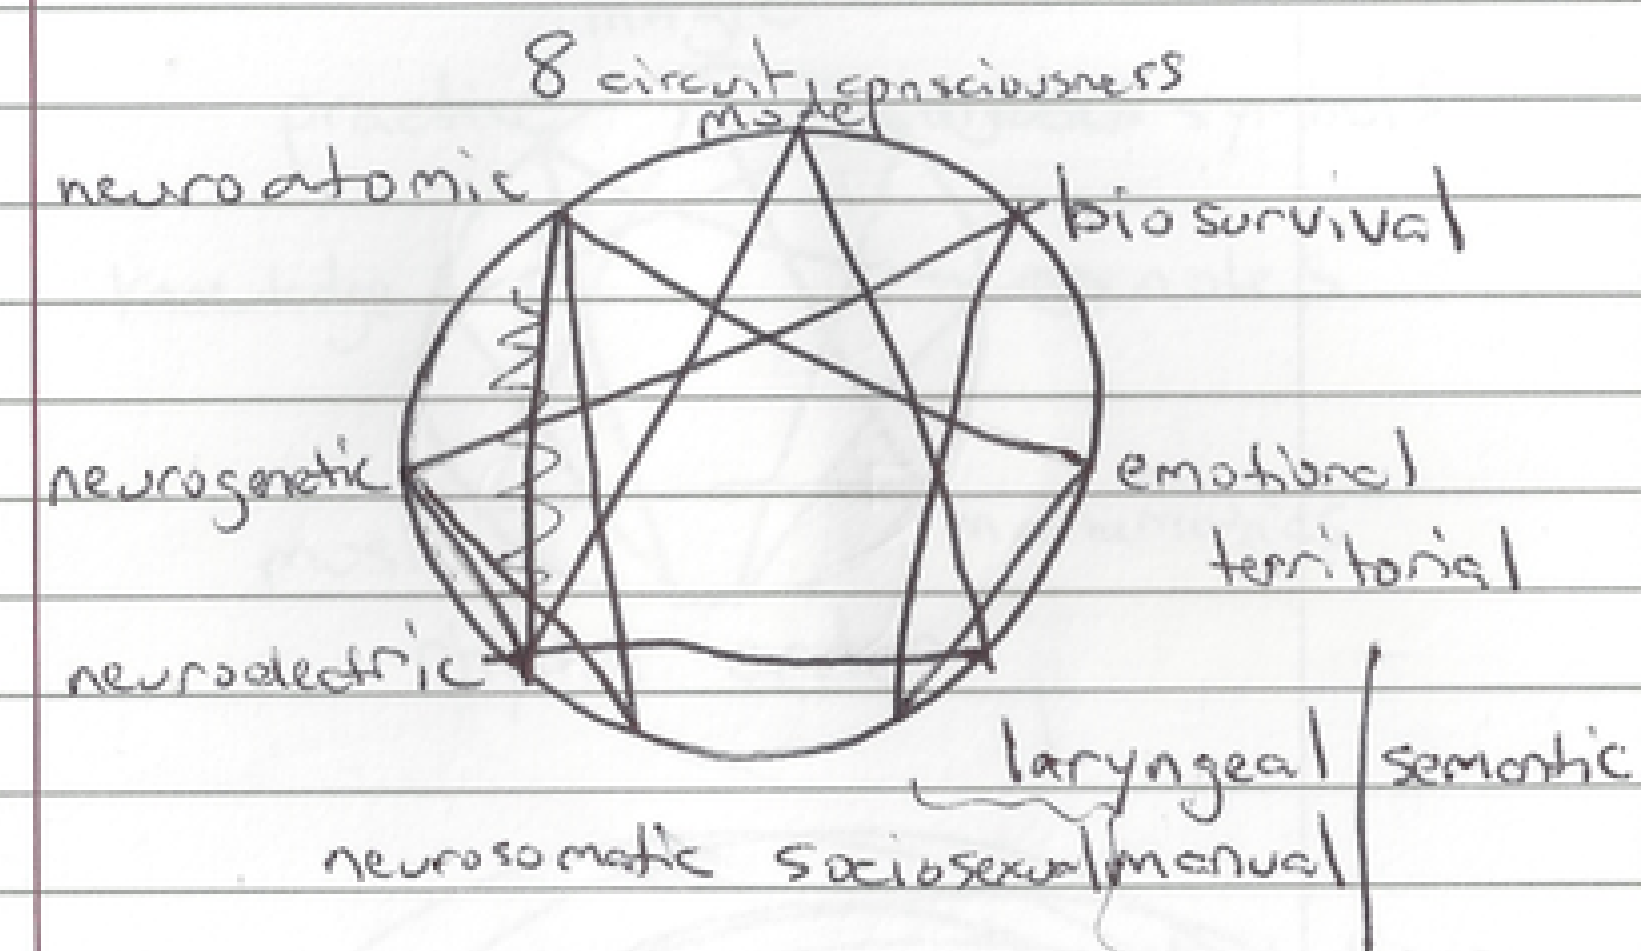 8 circuit consciousness
model
neuroatomic
biosurvival
neurogenetic
emotional
territorial
neuroelectric
laryngeal
semantic
neurosomatic sociosexual manual